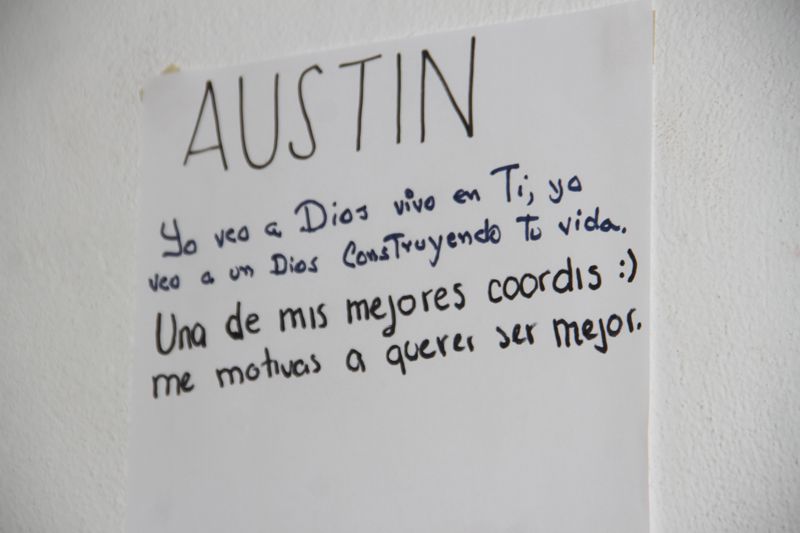 AUSTIN
Yo veo a Dios vivo en Ti, yo
veo a un Dios ConsTruyendo Tu vida.
Una de mis mejores coordis :)
me motivas a querer ser mejor.